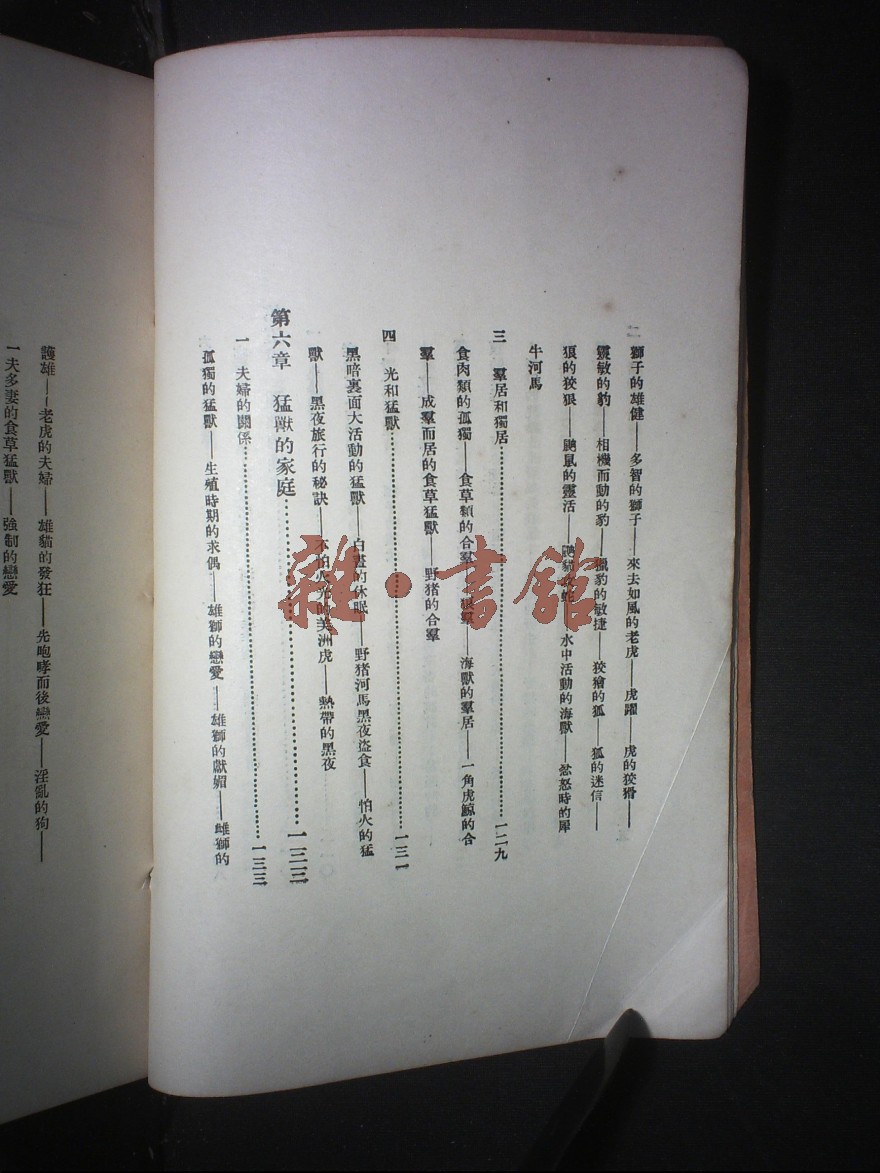 獅子的雄健——多智的獅子——來去如風的老虎——虎躍——虎的狡猾——
靈敏的豹——相機而動的豹——獵豹的敏捷——狡獪的狐——狐的迷信——
狼的狡狠——鼬鼠的靈活——水中活動的海獸——忿怒時的犀
牛河馬
三 羣居和獨居…………一二九
食肉類的孤獨——食草類的合羣——狼羣——海獸的羣居——一角虎鯨的合
羣——成羣而居的食草猛獸——野猪的合羣
四 光和猛獸…………一三一
黑暗裏面大活動的猛獸——白晝的休眠——野猪河馬黑夜盜食——怕火的猛
獸——黑夜旅行的秘訣——不怕火光的美洲虎——熱帶的黑夜
第六章 猛獸的家庭…………一三三
一 夫婦的關係…………一三三
孤獨的猛獸——生殖時期的求偶——雄獅的戀愛——雄獅的獻媚——雌獅的
護雄——老虎的夫婦——雄貓的發狂——先咆哮而後戀愛——淫亂的狗——
一夫多妻的食草猛獸——強制的戀愛
雜·書館